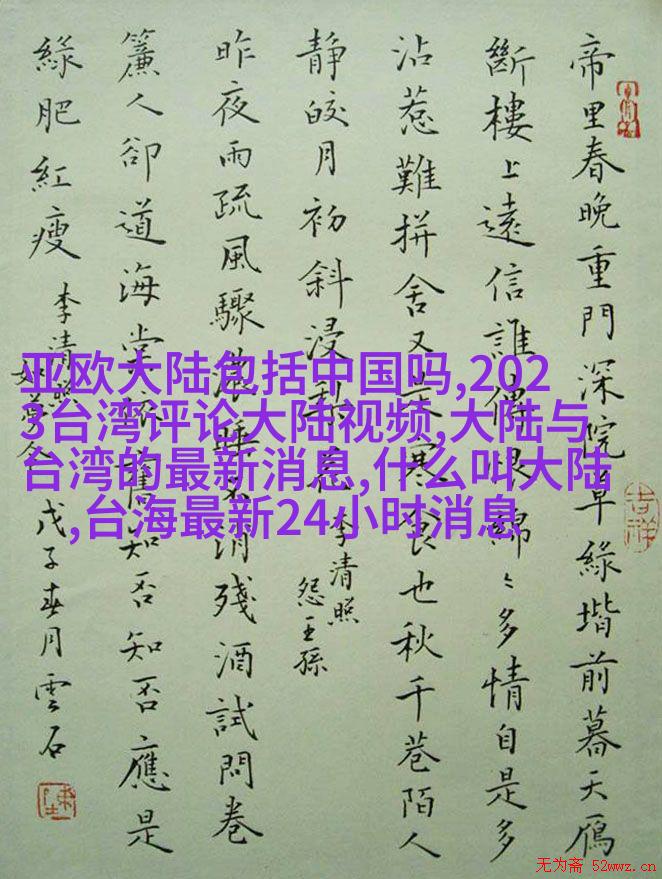 帝里春晚重門深院草緑堦前暮天鴈
斷樓上遠信誰傳恨綿〻多情自是多
沾惹難拼舍又是寒食也秋千巷陌人
静皎月初斜浸梨花
李清照
怨王孫
昨夜雨疏風驟濃睡不消殘酒試問卷
簾人卻道海棠依舊知否知否應是
緑肥紅瘦
李清照
如夢令
戊子春月雲石
吉祥
亚欧大陆包括中国吗,202
3台湾评论大陆视频,大陆与
台湾的最新消息,什么叫大陆
,台海最新24小时消息
无为斋 52wwz.cn